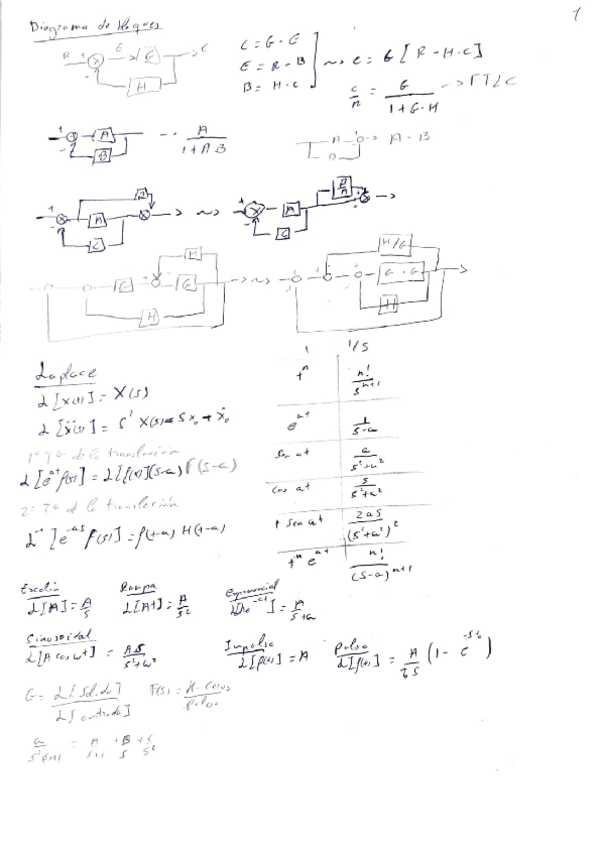 1
Diagrama de bloques
R + E G C
H
C = G · E
E = R - B
B = H · C
~> C = G [R - H · C]
C/R = G/(1+G·H) -> FTLC
+ - A B
A/(1+A·B)
A · B
+ - A C
~>
+ - A C
H
G G
H
~>
H/G
G · G
H
Laplace
L[x(t)] = X(s)
L[ẍ(t)] = s² X(s) - s x₀ + ẋ₀
1º Tª de la translación
L[e^at f(t)] = L[f(t)](s-a) F(s-a)
2º Tª de la translación
L⁻¹[e^-as f(s)] = f(t-a) H(t-a)
1 1/s
t^n n!/s^(n+1)
e^at 1/(s-a)
Sen at a/(s²+a²)
cos at s/(s²+a²)
t sen at 2as/(s²+a²)²
t^n e^at n!/(s-a)^(n+1)
Escalón Rampa Exponencial
L[A] = A/s L[At] = A/s² L[Ae^-at] = A/(s+a)
Sinusoidal Impulso Pulso
L[A cos wt] = As/(s²+w²) L[f(t)] = A L[f(t)] = A/(t₀ s) (1 - e^-st₀)
G = L[Salida]/L[entrada] F(s) = K · ceros/polos
= A/(s+1) + B/s + C/s²